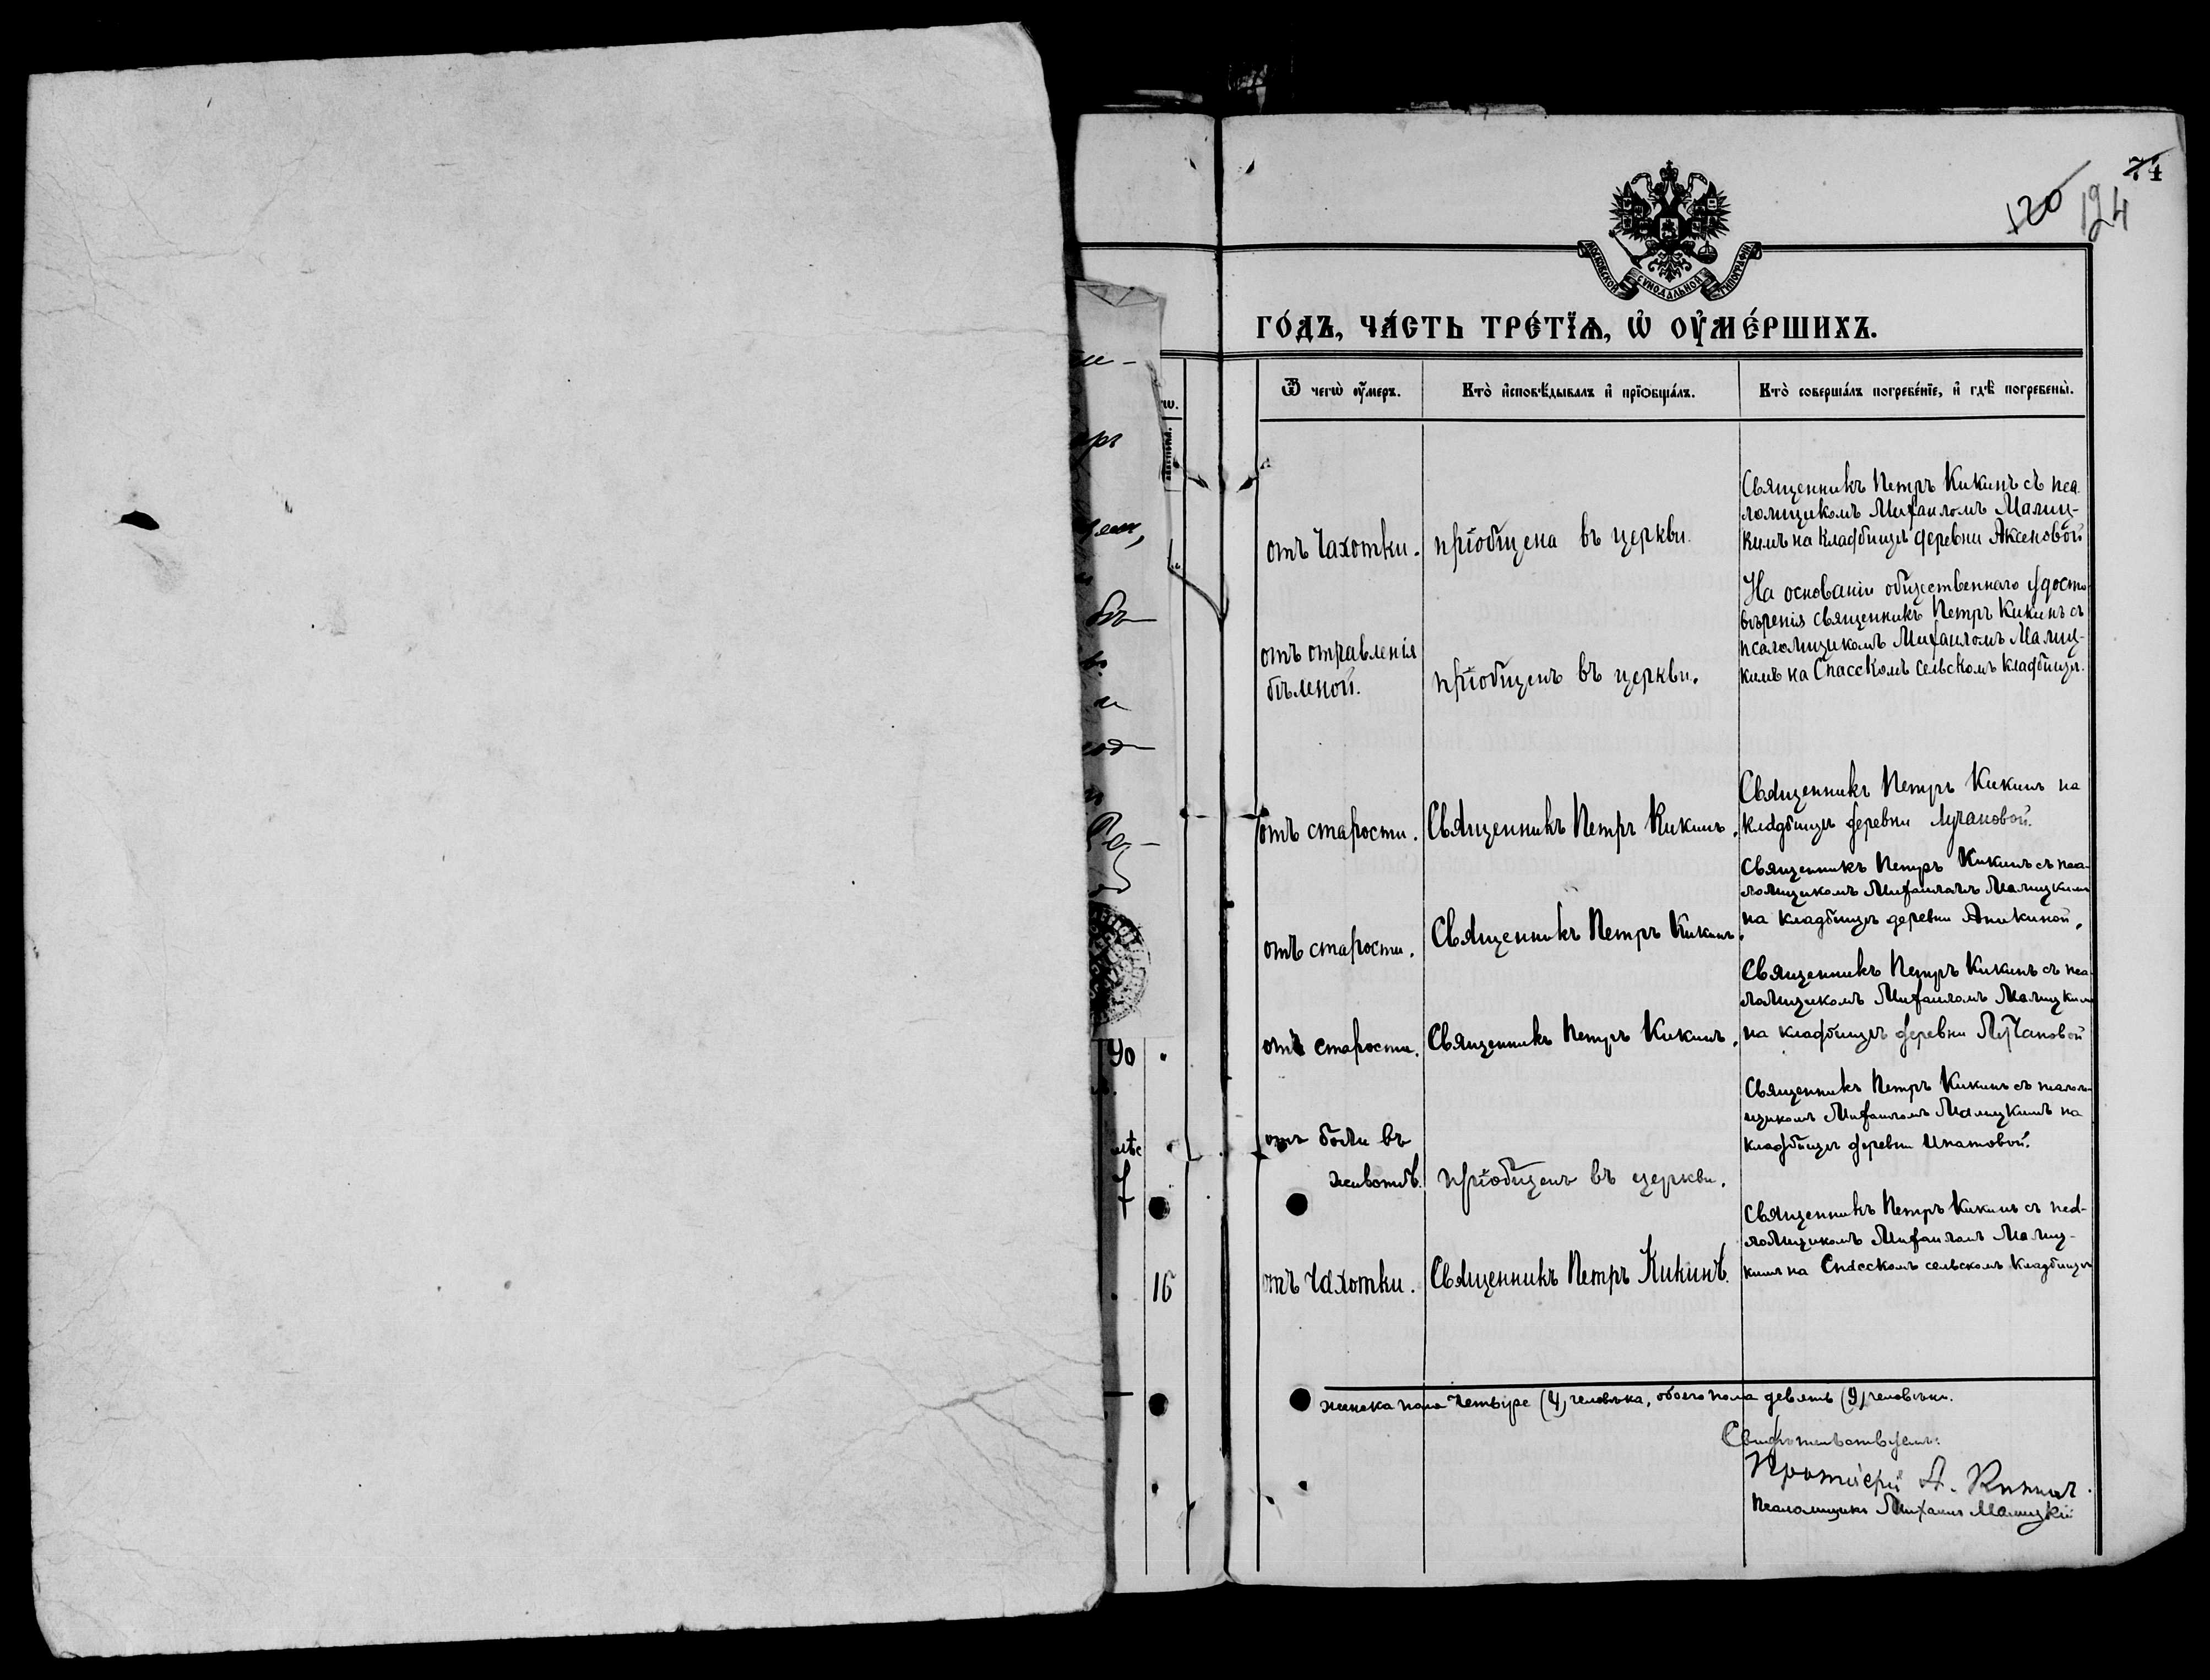 74
120 124
МОСКОВСКОЙ СѴНОДАЛЬНОЙ ТИПОГРАФІИ
ГО́ДЪ, ЧА́СТЬ ТРЕ́ТЇѦ, Ѡ҆ ОУ҆МЕ́РШИХЪ.
Ѿ чегѡ̀ оу҆́меръ.
Кто̀ и҆сповѣ́дывалъ и҆ прїѡбща́лъ.
Кто̀ соверша́лъ погребе́нїе, и҆ гдѣ̀ погребены̀.
отъ чахотки.
пріобщена въ церкви.
Священникъ Петръ Кикинъ съ пса
ломщикомъ Михаиломъ Малиц-
кимъ на кладбищѣ деревни Аксеновой
отъ отравленія
бѣленой.
пріобщенъ въ церкви.
На основаніи общественнаго удосто
вѣренія священникъ Петръ Кикинъ съ
псаломщикомъ Михаиломъ Малиц-
кимъ на Спасскомъ сельскомъ кладбищѣ.
отъ старости.
Священникъ Петръ Кикинъ.
Священникъ Петръ Кикинъ на
кладбищѣ деревни Лучановой.
отъ старости.
Священникъ Петръ Кикинъ.
Священникъ Петръ Кикинъ съ пса-
ломщикомъ Михаиломъ Малицкимъ
на кладбищѣ деревни Аникиной.
отъ старости.
Священникъ Петръ Кикинъ.
Священникъ Петръ Кикинъ съ пса-
ломщикомъ Михаиломъ Малицким
на кладбищѣ деревни Лучановой
отъ боли въ
животѣ.
пріобщенъ въ церкви.
Священникъ Петръ Кикинъ съ псалом-
щикомъ Михаиломъ Малицкимъ на
кладбищѣ деревни Ипатовой.
16
отъ чахотки.
Священникъ Петръ Кикинъ.
Священникъ Петръ Кикинъ съ пса-
ломщикомъ Михаиломъ Малиц-
кимъ на Спасскомъ сельскомъ кладбищѣ
женска пола четыре (4) человѣка, обоего пола девять (9) человѣкъ.
Свидѣтельствуемъ:
Протоіерей А. Кикинъ.
Псаломщикъ Михаилъ Малицкій